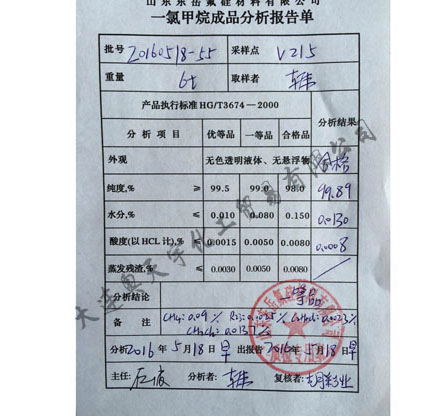 山东东岳氟硅材料有限公司
一氯甲烷成品分析报告单
批号 20160518-55 采样点 V215
重量 6t 取样者
产品执行标准HG/T3674—2000 分析结果
分析项目 优等品 一等品 合格品
外观 无色透明液体、无悬浮物 合格
纯度,% ≥ 99.5 99.0 98.0 99.89
水分,% ≤ 0.010 0.080 0.150 0.0130
酸度(以HCL计),% ≤ 0.0015 0.0050 0.0080 0.0008
蒸发残渣,% ≤ 0.0030 0.0050 0.0080
分析结论 一等品
备注 CH4: 0.09%
分析 2016年5月18日早 出报告 2016年5月18日早
主任: 分析者: 复核者:
大连奥天宇化工贸易有限公司